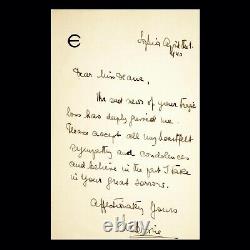 e
Sofia April 1st
Dear Miss
The sad news of your tragic
loss has deeply grieved me
Please accept all my heartfelt
sympathy and condolences
and believe in the part I take
in your great sorrow.
Affectionately Yours